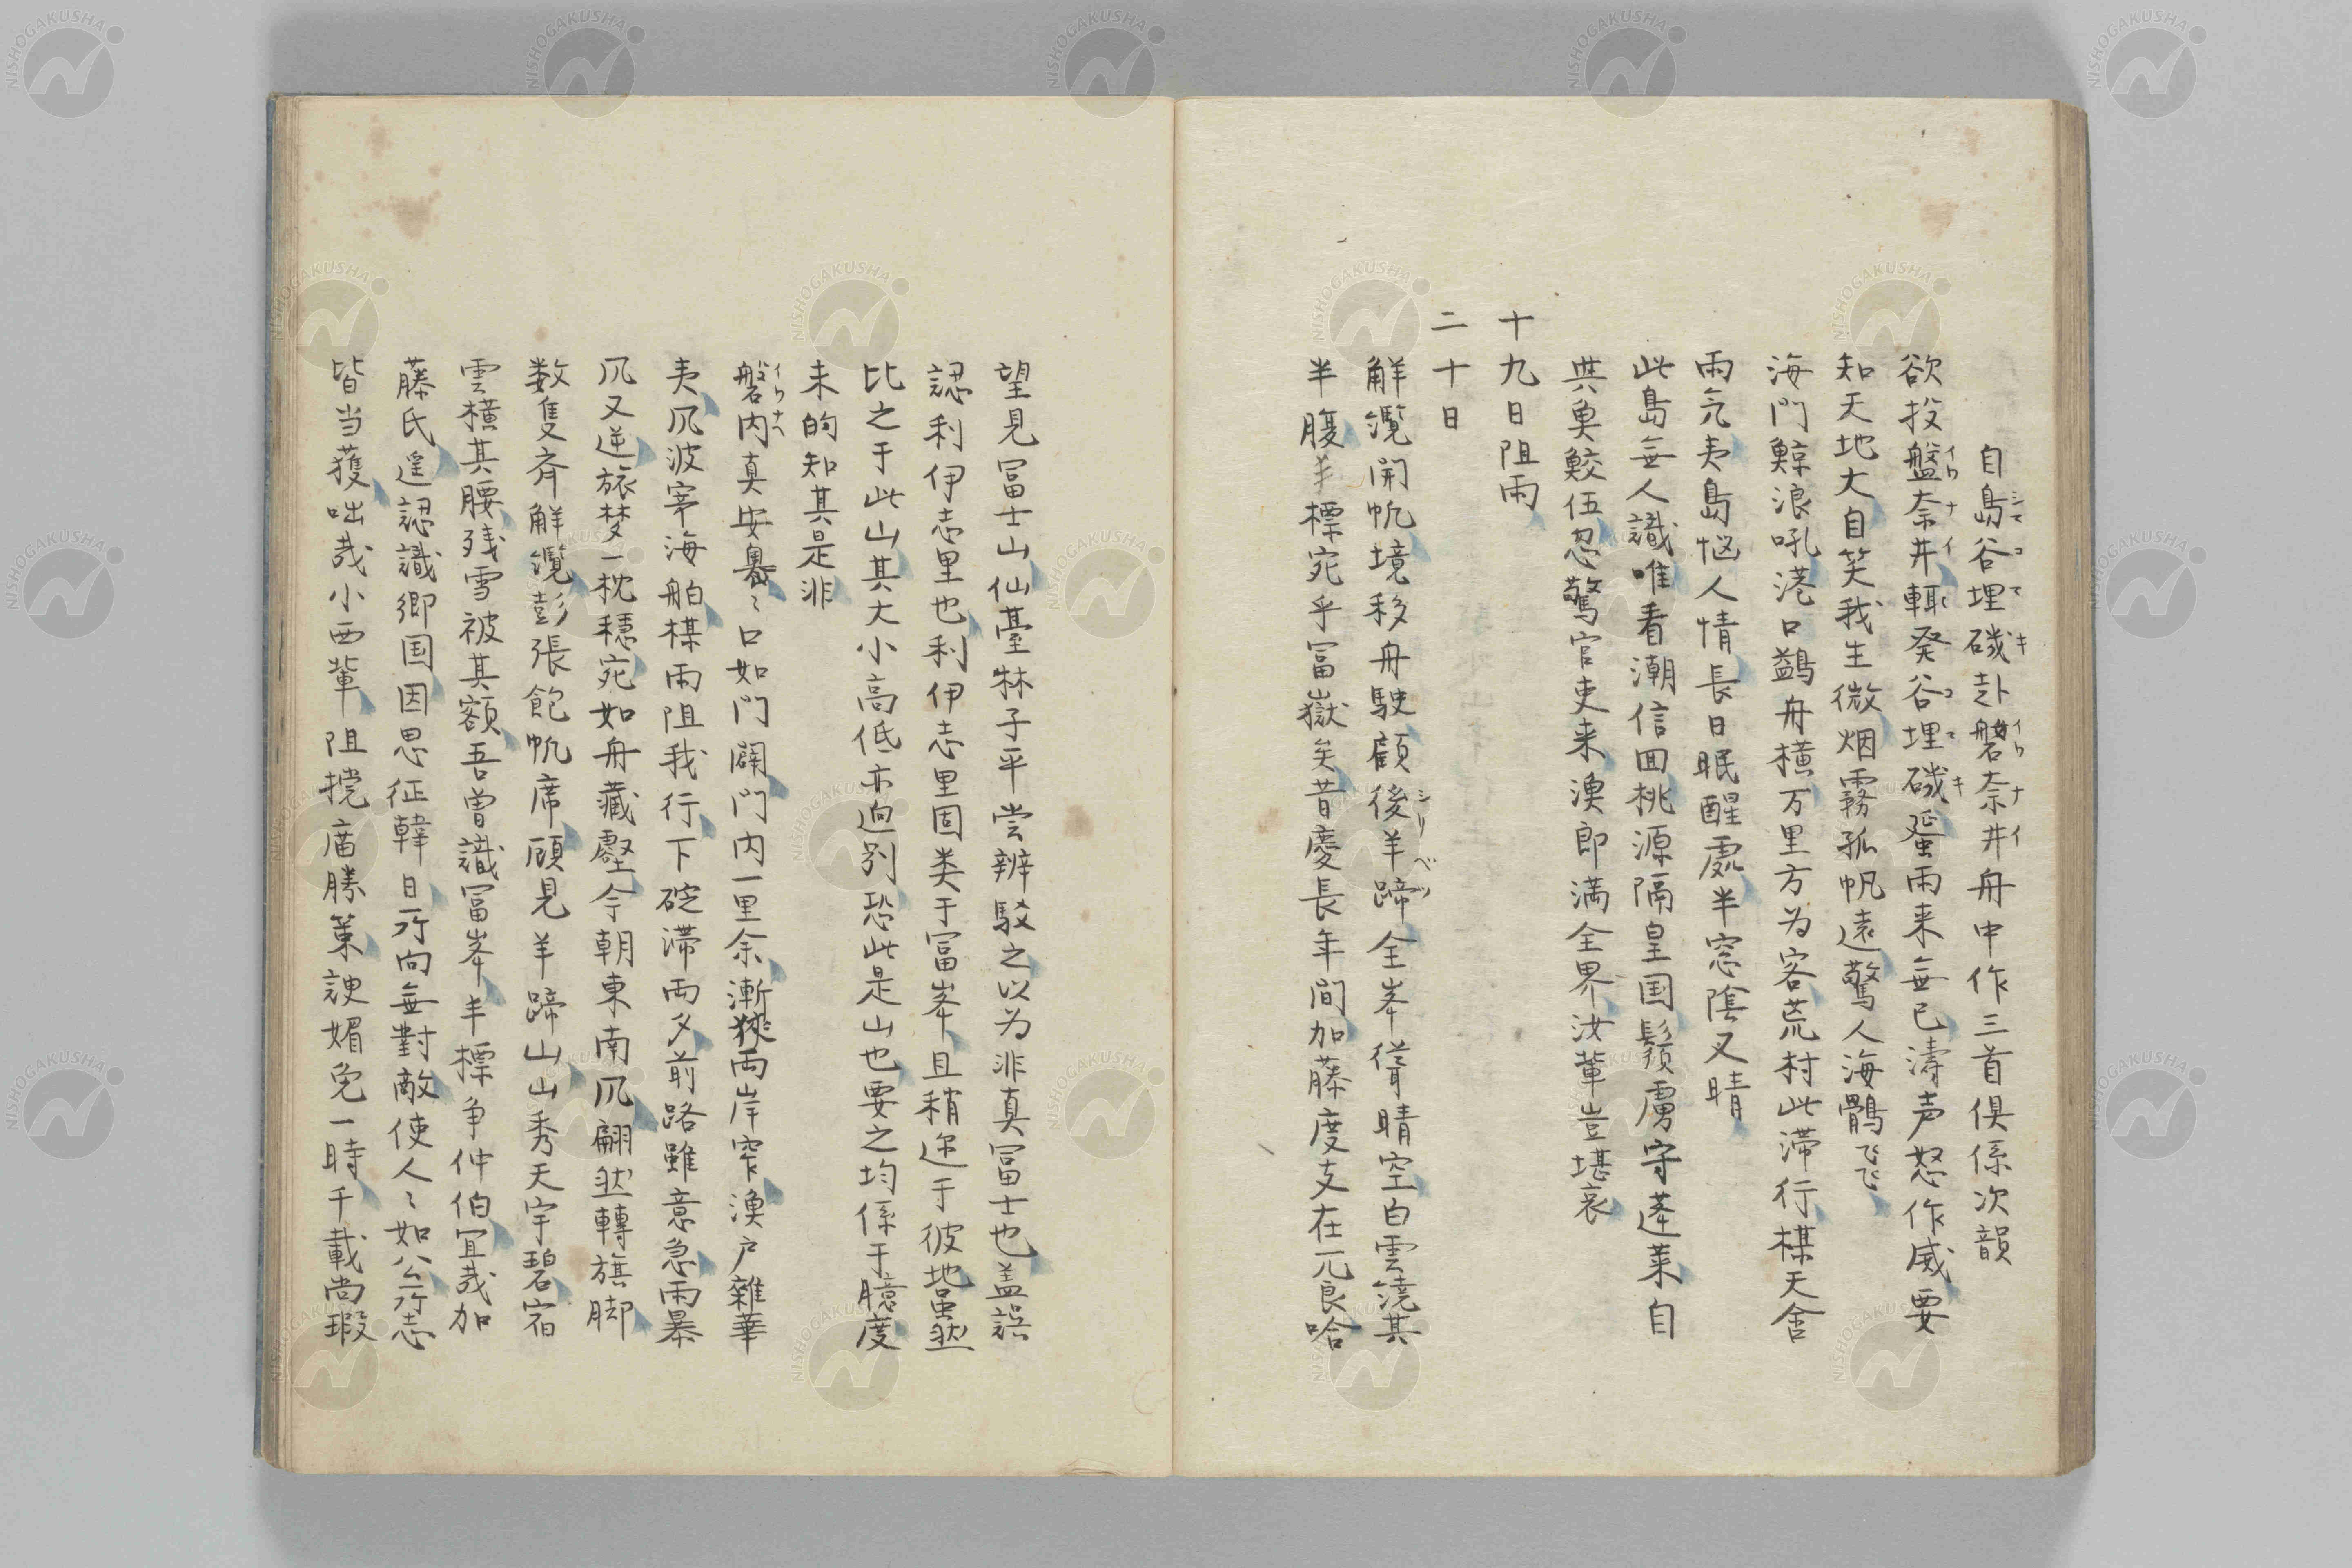 自島谷埋磯赴磐奈井舟中作三首俱係次韻
欲投盤奈井輒発谷埋磯蜑雨来無已濤声怒作威要
知天地大自笑我生微烟霧孤帆遠驚人海鶻飛
海門鯨浪吼港口鷁舟横万里方為客荒村此滞行楳天舍
雨気夷島悩人情長日眠醒處半窓陰又晴
此島無人識唯看潮信回桃源隔皇国鬚虜守蓬莱自
與魚鮫伍忽驚官吏来漁郎満全界汝輩豈堪哀
十九日阻雨
二十日
解纜開帆境移舟駛顧後羊蹄全峯聳晴空白雲繞其
半腹半標宛乎冨嶽矣昔慶長年間加藤度支在兀良哈
望見冨士山仙臺林子平嘗辨駁之以为非真冨士也盖誤
認利伊志里也利伊志里固类于冨峯且稍迩于彼地虽然
比之于此山其大小高低亦迥别恐此是山也要之均係于臆度
未的知其是非
磐内真安奥々口如門闢門内一里余漸狭両岸窄漁户雜華
夷风波穿海舶楳雨阻我行下碇滞両夕前路雖意急雨暴
风又逆旅梦一枕穏宛如舟藏壑今朝東南风翩然轉旗脚
数隻斉解纜彭張飽帆席頋見羊蹄山山秀天宇碧宿
雲横其腰残雪被其額吾曽識冨峯半標争仲伯宜哉加
藤氏遥認識鄉国因思征韓日所向無對敵使人々如公所志
皆当獲咄哉小西輩阻撓庿勝策諛媚免一時千載尚瑕
シマコマキ
イワナイ
イワナイ
コマキ
シリベツ
イワナヘ
NISHOGAKUSHA